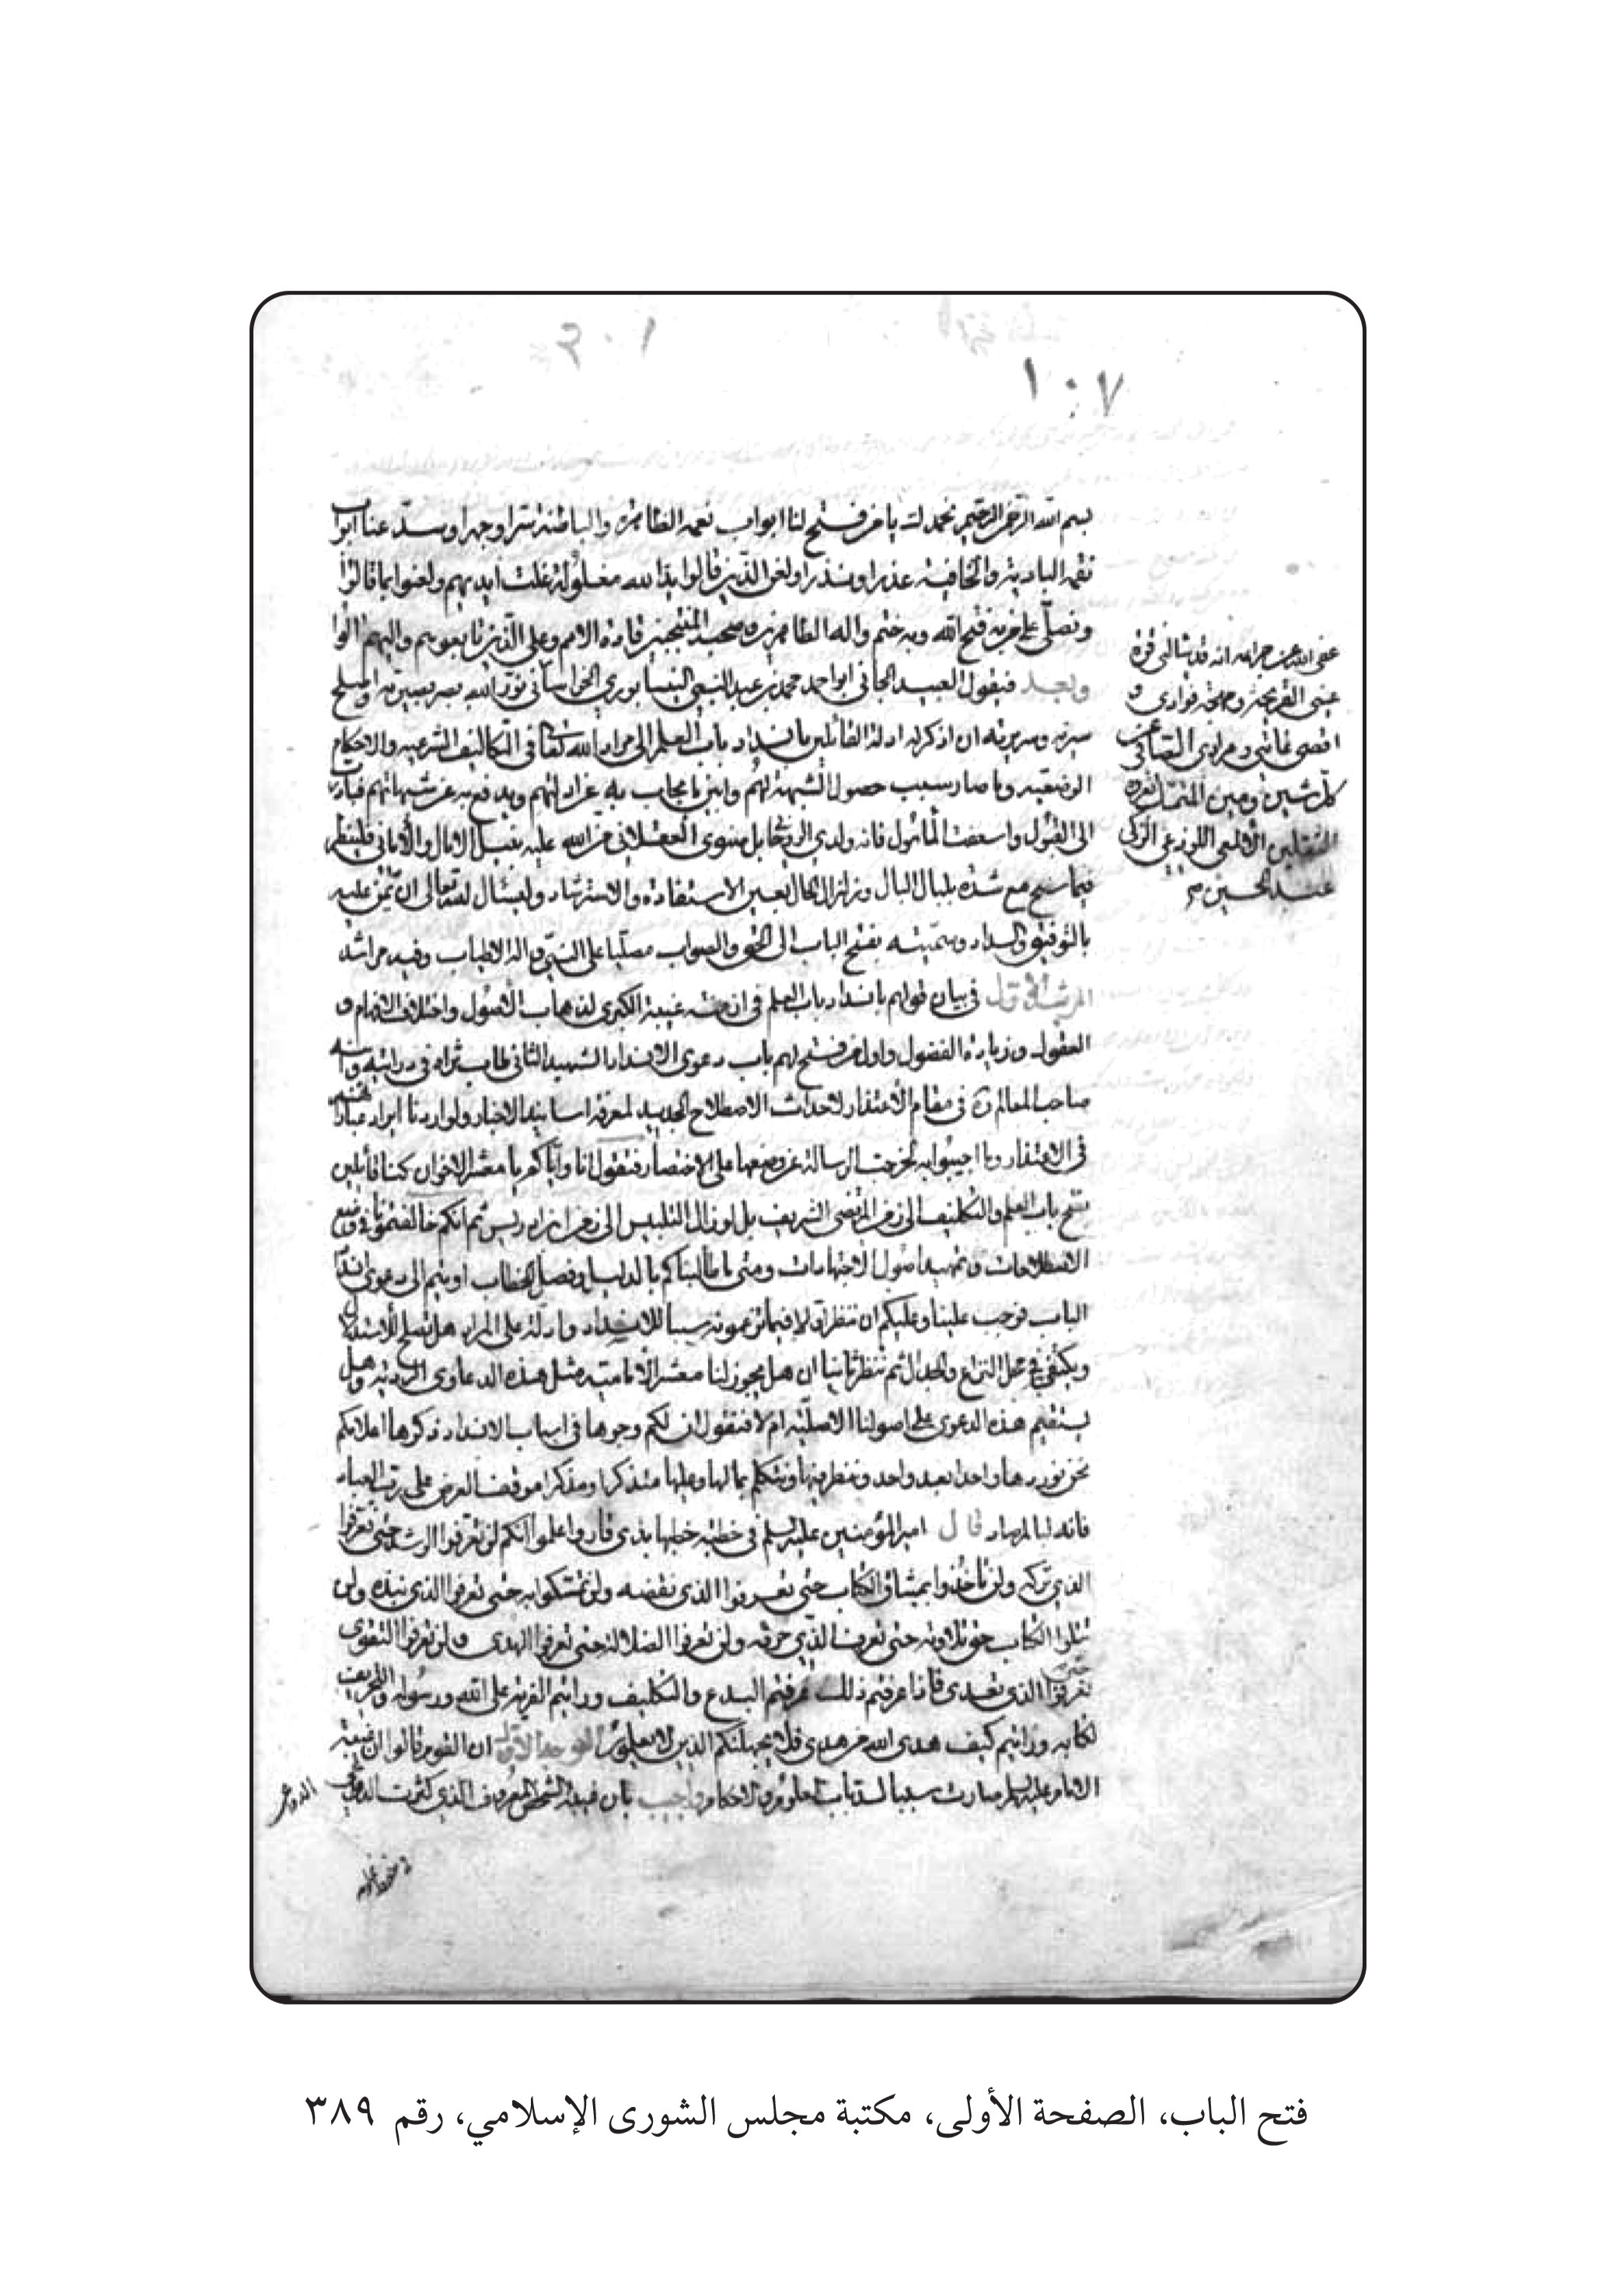 ١٠٢
١٠٧
بسم الله الرحمن الرحيم نحمد لله يا من فتح لنا ابواب نعمه الظاهرة والباطنة سرا وجهرا وسد عنا ابواب
نقمه البادية والخافية عذرا ونذرا ولعن الذين قالوا يد الله مغلولة غلت ايديهم ولعنوا بما قالوا
ونصلي على من به فتح الله وبه ختم واله الطاهرين وصحبه المنتجبين قادة الامم وعلى الذين تابعوهم واليهم الوا
وبعد فيقول العبد الجاني ابو احمد محمد بن عبد النبي النيسابوري الخراساني نور الله بصر بصيرته واصلح
سيرته وسريرته ان اذكر له ادلة القائلين بانسداد باب العلم الى مراد الله تعالى في التكاليف الشرعيه والاحكام
الوضعيه وما صار سبب حصول الشبهة لهم وابين ما يجاب به عن ادلتهم ويدفع به عن شبهاتهم فبادرت
الى القبول واسعفت المأمول فانه ولدي الروحاني بل منوى العقلاني من الله عليه بنيل الامال والأماني فلينظر
فيما سنح مع شدة بلبال البال وزلزال الحال بعين الاستفادة والاسترشاد وليسال الله تعالى ان يمن عليه
بالتوفيق والسداد وسميته بفتح الباب الى الحق والصواب مصليا على النبي واله الاطياب وفيه مراشد
المرشد الاول في بيان قولهم بانسداد باب العلم في ازمنة غيبة الكبرى لذهاب الاصول واختلاف الافهام و
العقول وزيادة الفضول واول من فتح لهم باب دعوى الانسداد الشهيد الثاني طاب ثراه في درايته وابنه
صاحب المعالم ره في مقام الاعتذار لاحداث الاصطلاح الجديد لمعرفة اسانيد الاخبار ولو اردنا ايراد عباراتهم
في الاعتذار وما اجيبوا به لخرجت الرسالة عن وضعها على الاختصار فنقول انا واياكم يا معشر الاخوان كنا قائلين
بفتح باب العلم والتكليف الى زمن المرتضى الشريف بل او زال التلبيس الى زمن ابن ادريس ثم انكم خالفتمونا في وضع
الاصطلاحات وتمهيد اصول الاجتهادات ومتى ما طالبناكم بالدليل وفصل الخطاب اويتم الى دعوى انسداد
الباب فوجب علينا وعليكم ان ننظر اولا فيما تزعمونه سببا للانسداد وادلة على المراد هل تصلح للاستدلال
ويكتفى في محل النزاع والجدال ثم ننظر ثانيا ان هل يجوز لنا معشر الامامية مثل هذه الدعاوى الردية وهل
يستقيم هذه الدعوى على اصولنا الاصلية ام لا فنقول ان لكم وجوها في اسباب الانسداد ذكرها اعلامكم
نحن نوردها واحدا بعد واحد وننظر فيها ونتكلم بما لها وعليها متذكرا ومذكرا موقف العرض على رب العباد
فانه لبالمرصاد قال امير المؤمنين عليه السلم في خطبة خطبها بذي قار واعلموا انكم لن تعرفوا الرشد حتى تعرفوا
الذي تركه ولن تأخذوا بميثاق الكتاب حتى تعرفوا الذي نقضه ولن تمسكوا به حتى تعرفوا الذي نبذه ولن
تتلوا الكتاب حق تلاوته حتى تعرفوا الذي حرفه ولن تعرفوا الضلالة حتى تعرفوا الهدى ولن تعرفوا التقوى
حتى تعرفوا الذي تعدى فاذا عرفتم ذلك عرفتم البدع والتكليف ورايتم الفرية على الله ورسوله والتحريف
لكتابه ورايتم كيف هدى الله من هدى فلا يجهلنكم الذين لا يعلمون الوجه الاول ان القوم قالوا ان غيبة
الامام عليه السلم صارت سببا لسد باب العلوم والاحكام واجيب بان غيبة الشخص المعروف الذي كثرت الدواعي
عفى الله عن جرايمه انه قد سالني قرة
عيني القريحة ومهجة فوادي و
اقصى غاتي ومرادي الصافي عن
كل شين ومين المتمسك بعروة
الثقلين الالمعي اللوذعي الزكي
عبد الحسين
فتح الباب، الصفحة الأولى، مكتبة مجلس الشورى الإسلامي، رقم ٣٨٩